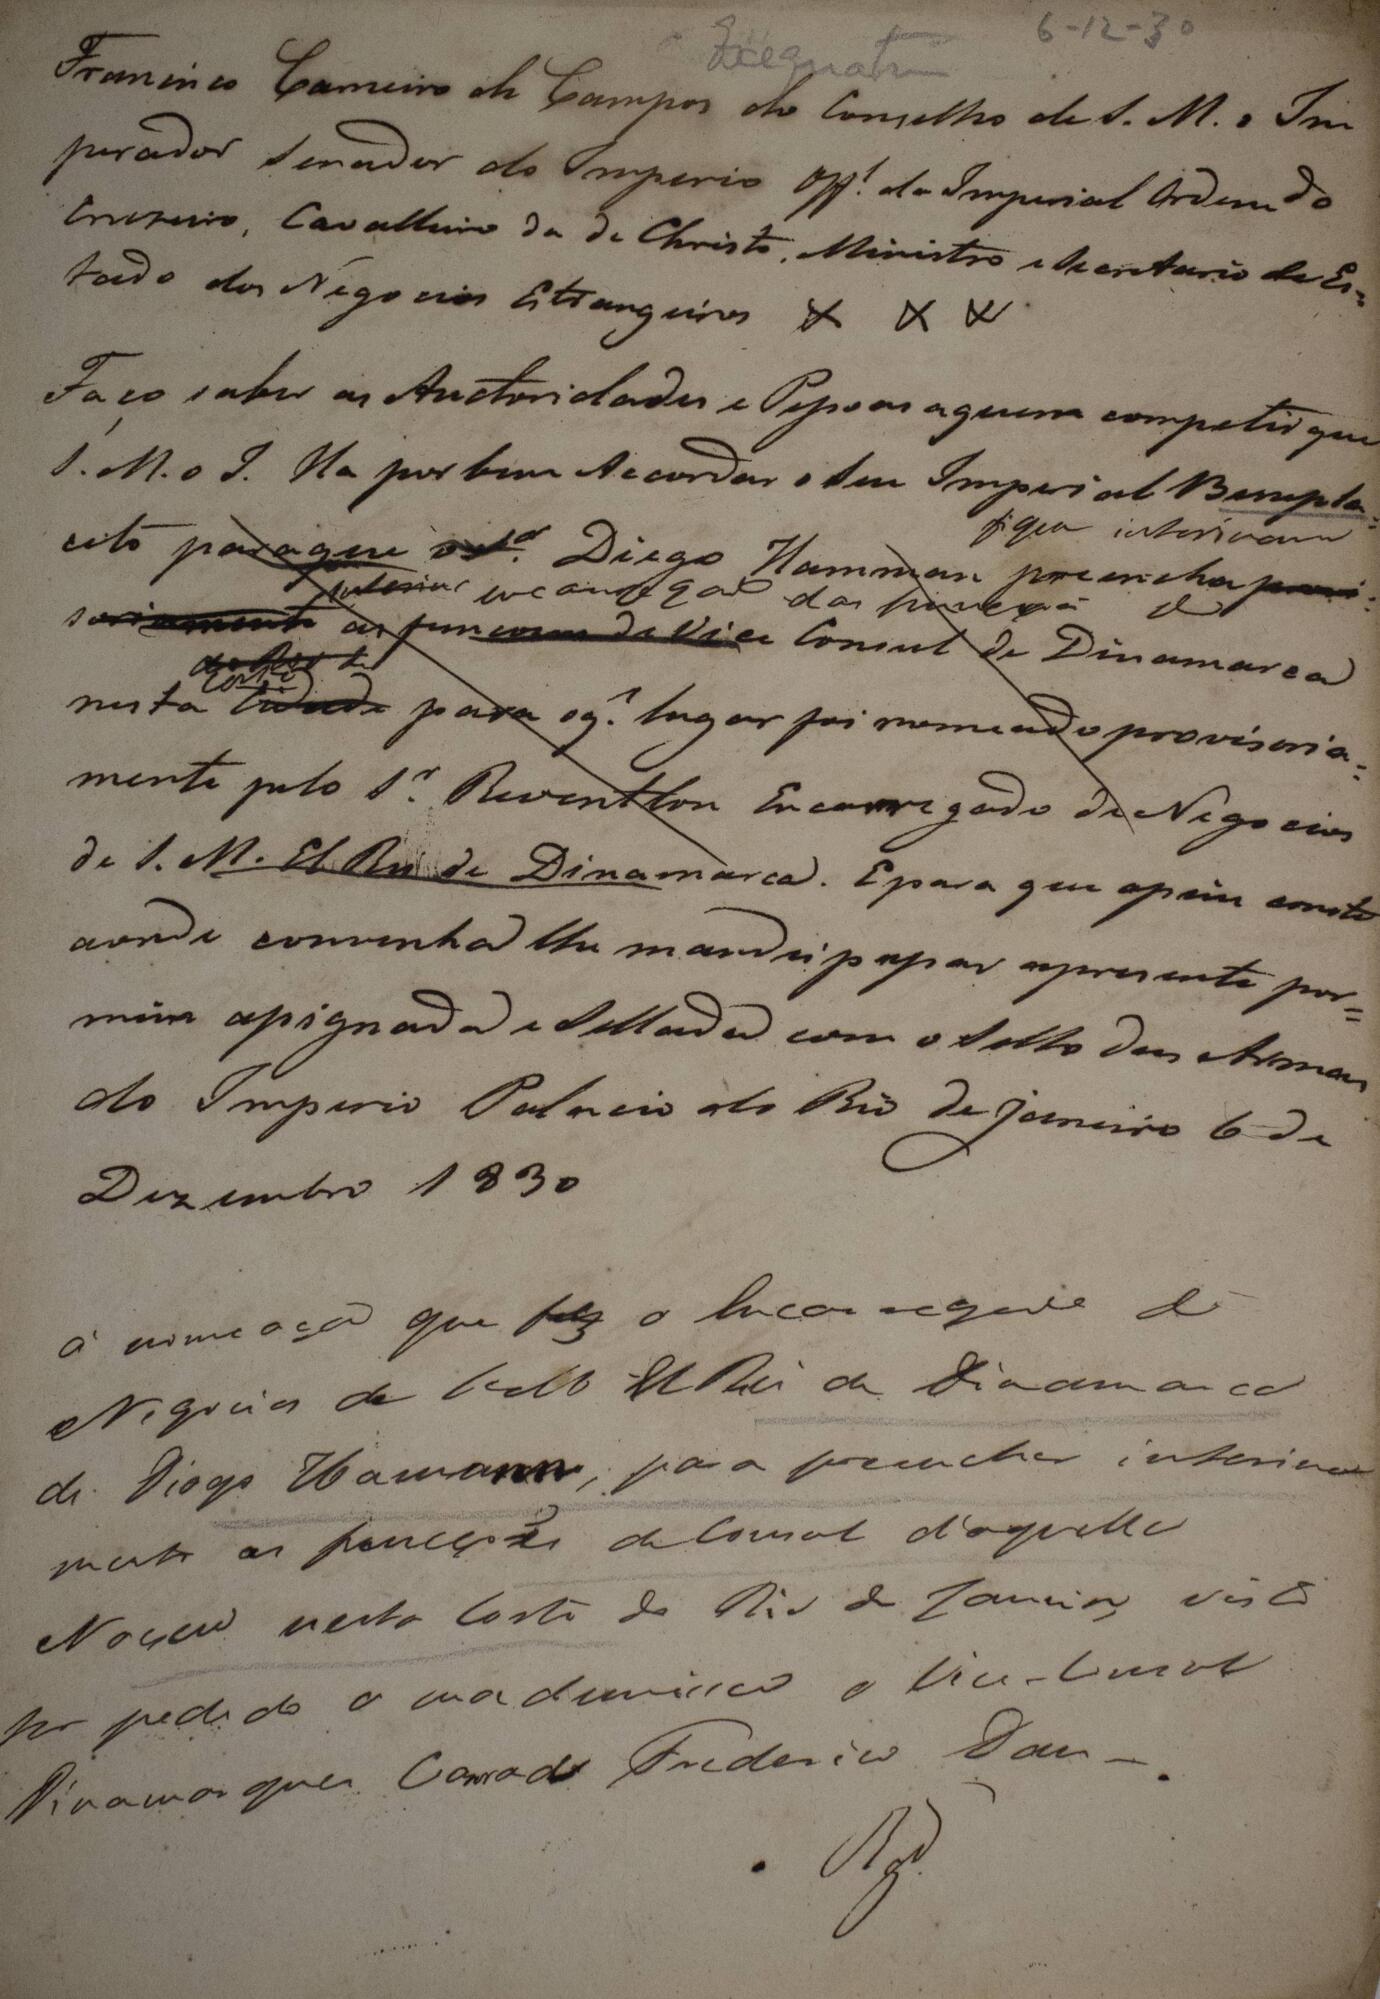 Exequatur 6-12-30
Francisco Carneiro de Campos do Conselho de S. M. o Im
perador Senador do Imperio Off.l da Imperial Ordem do
Cruzeiro, Cavalleiro da de Christo, Ministro e Secretario de Es=
tado dos Negocios Estrangeiros
Faço saber as Auctoridades e Pessoas aquem competir que
S. M. o I. Ha por bem Accordar o Seu Imperial Beneplá=
fique interinam
cito para que o Sr. Diego Hamman preencha provi=
interinam encarregado das funcções de
soriamente as funcçoens de Vice Consul de Dinamarca
Corte
nesta Cidade para o q.l lugar foi nomeado provisoria=
mente pelo Sr. Reventlou Encarregado de Negocios
de S. M. El Rei de Dinamarca. E para que assim conste
aonde convenha lhe mandei passar apresente por=
mim assignada e Sellada com o Sello das Armas
do Imperio Palacio do Rio de Janeiro 6 de
Dezembro 1830
á nomeaçaõ que fez o Encarregado de
Negocios de El Rei de Dinamarca
de Diogo Hamann, para preencher interina
mente as funcções de Consul d'aquella
Naçaõ nesta Corte do Rio de Janeiro, visto
ter pedido a sua demissaõ o Vice-Consul
Dinamarquez Conrado Frederico Dan